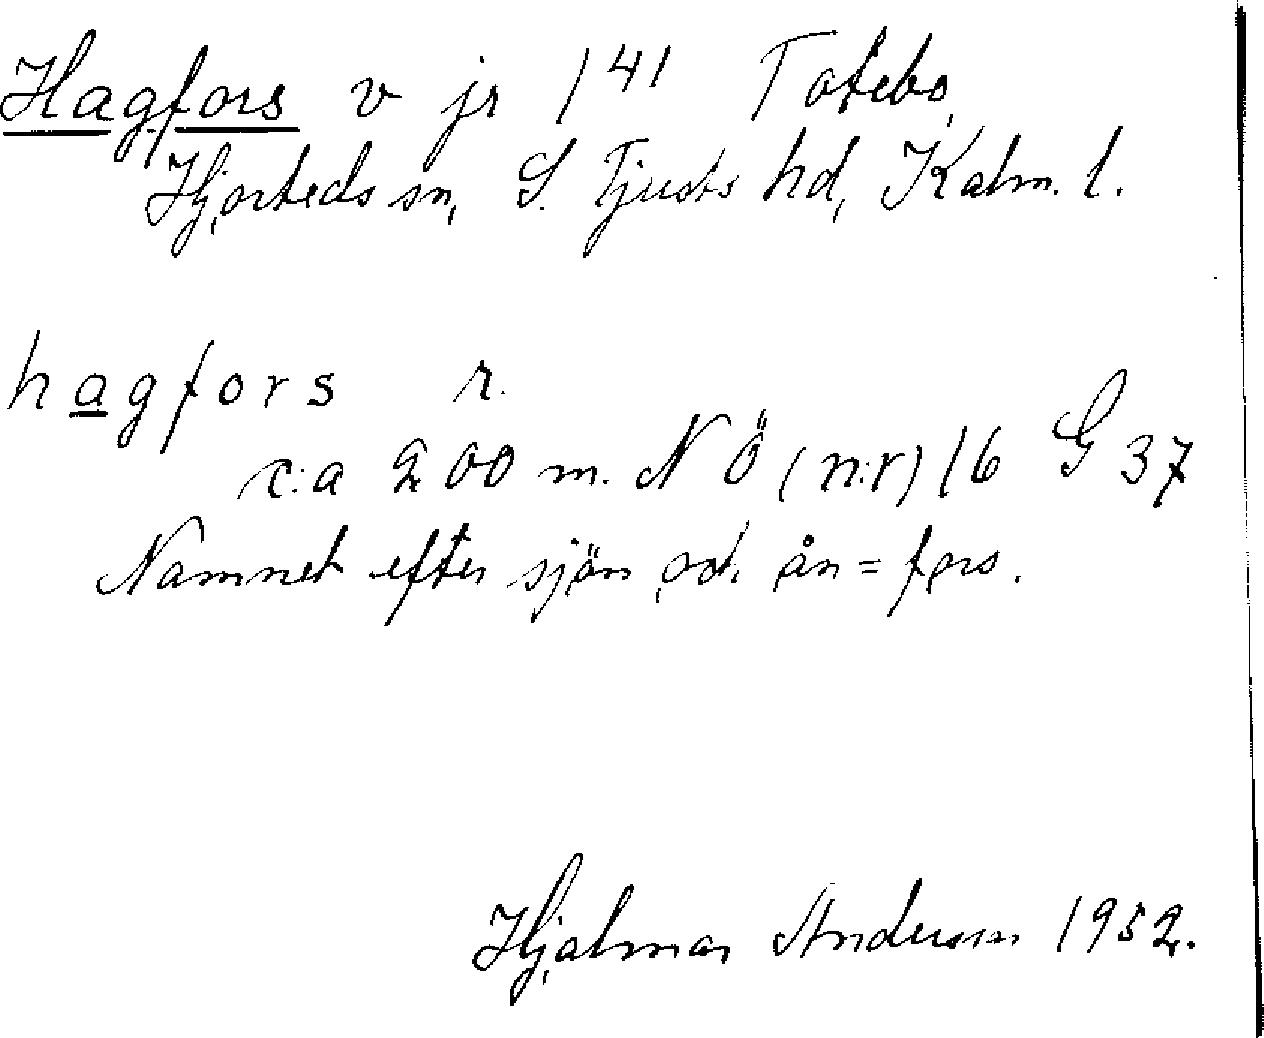 Hagfors v jr 141 Totebo,
Hjorteds sn, S. Tjusts hd, Kalm. l.
hagfors r.
c:a 200 m. NÖ (n:r) 16 G 37
Namnet efter sjön och ån = fors.
Hjalmar Andersson 1952.